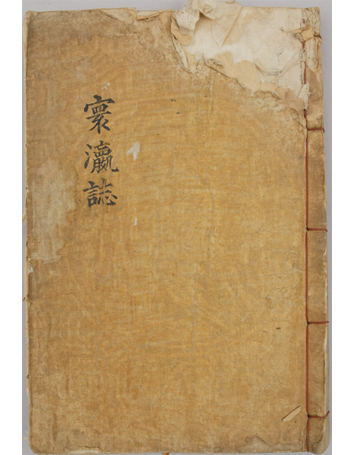 寰瀛誌